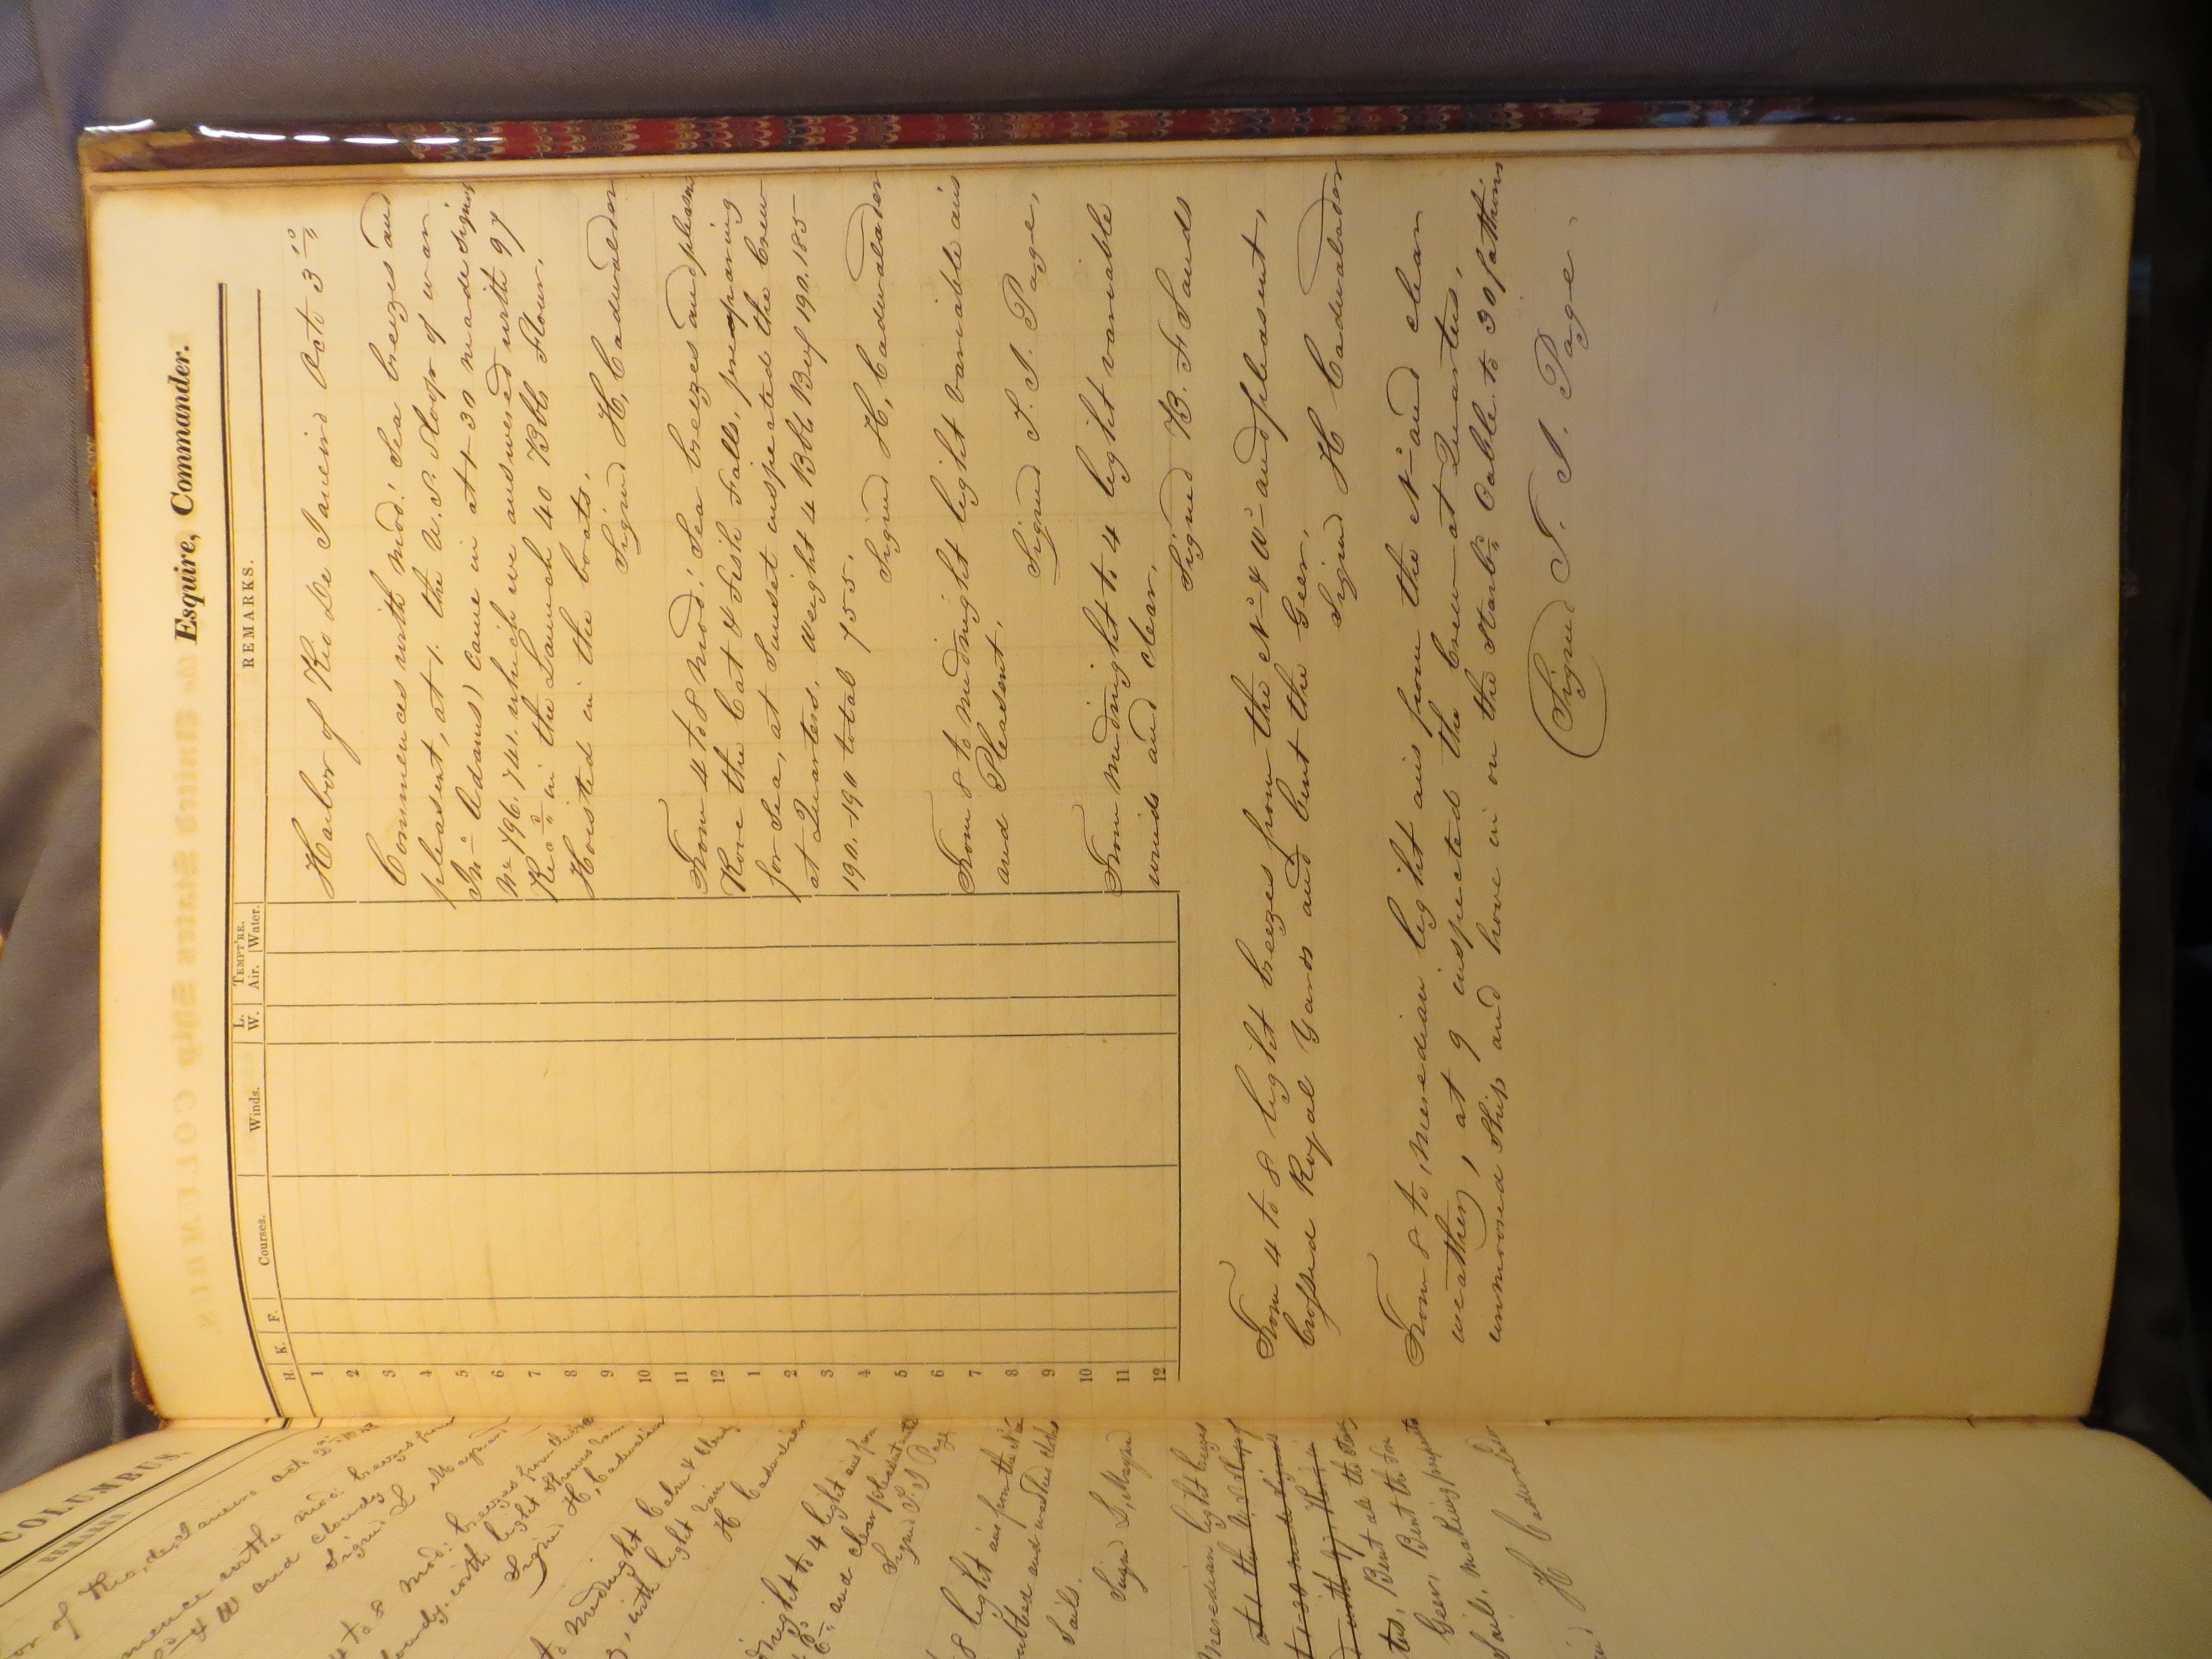 COLUMBUS
REMARKS.
of Rio, de, Janeiro Oct 2
mence with mod: breezes from
& W and cloudy
Signed L Maynard
4 to 8 mod: breezes from
cloudy, with light showers rain
Signed H, Cadwalader
to Midnight Calm & Cloudy
with light rain
H Cadwalader
night to 4 light airs from
and clear pleasant
Signed T. J Page
8 light airs from the N &
scrubbed and washed clothes
Sails.
Signed L, Maynd
Meredian light breezes
at 1 the U.
Bent all the
Geer, Bent the
Sails, making prepar
H Cadwalader
Esquire, Commander.
H. K. F. Courses. Winds. L. W. TEMPT'RE. Air. Water. REMARKS.
1
2
3
4
5
6
7
8
9
10
11
12
1
2
3
4
5
6
7
8
9
10
11
12
Harbor of Rio De Janeiro Octo 3
Commences with Mod: Sea breezes and
pleasent, at 1. the U. S. Sloop of war
Jn Adams) came in at 1-30 made signs
No 796. 741. which we answered with 97
Recd in the Launch 40 Bbls Flour.
Hoisted in the boats.
Signed H, Cadwalader
From 4 to 8 Mod: Sea breezes and pleasen
Rove the Cat & Fish Falls, preparing
for Sea, at Sunset inspected the Crew
at Quarters. Weight 4 Bbls Beef 190. 185
190.-190 total 755.
Signed H, Cadwalader
From 8 to Midnight light variable airs
and Pleasent.
Signed T. J. Page,
From Midnight to 4 light variable
winds and clear.
Signed B. F Sands
From 4 to 8 light breezes from the N & W and pleasent,
Crossed Royal Yards and bent the Geer,
Signed H Cadwalader
From 8 to Meredian light airs from the N and clear
weather, at 9 inspected the Crew at Quarters,
unmoored Ship and hove in on the Starbd Cable to 30 fathoms
Signed T. J. Page.